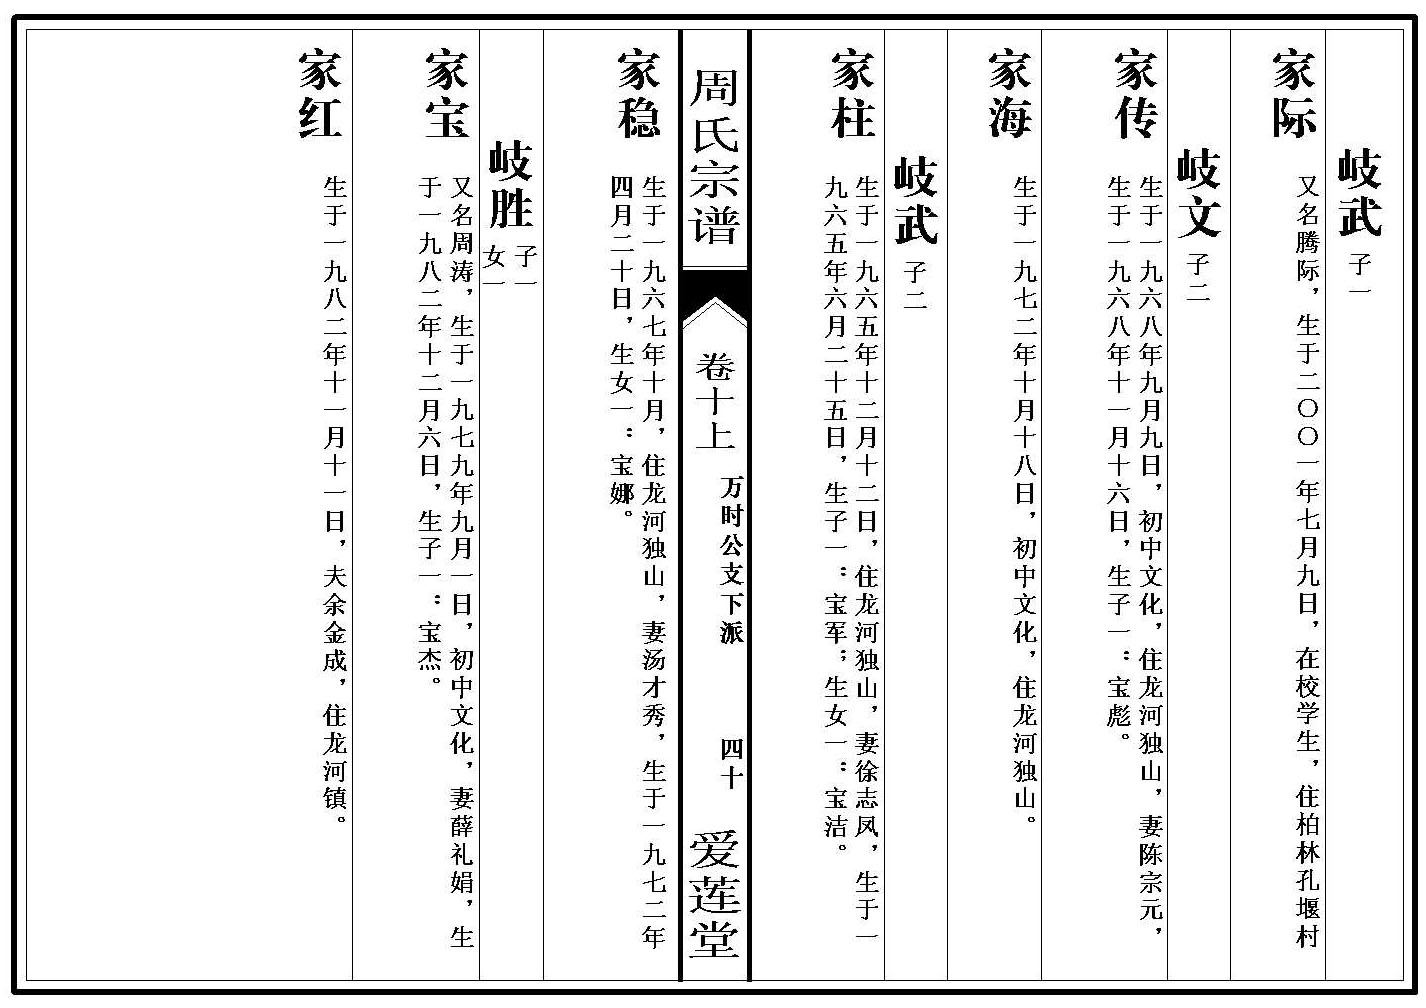 岐武
子一
家际
又名腾际，生于二〇〇一年七月九日，在校学生，住柏林孔堰村
岐文
子二
家传
生于一九六八年九月九日，初中文化，住龙河独山，妻陈宗元，
生于一九六八年十一月十六日，生子一：宝彪。
家海
生于一九七二年十月十八日，初中文化，住龙河独山。
岐武
子二
家柱
生于一九六五年十二月十二日，住龙河独山，妻徐志凤，生于一
九六五年六月二十五日，生子一：宝军；生女一：宝洁。
周氏宗谱
卷十上
万时公支下派
四十
爱莲堂
家稳
生于一九六七年十月，住龙河独山，妻汤才秀，生于一九七二年
四月二十日，生女一：宝娜。
岐胜
子一
女一
家宝
又名周涛，生于一九七九年九月一日，初中文化，妻薛礼娟，生
于一九八二年十二月六日，生子一：宝杰。
家红
生于一九八二年十一月十一日，夫余金成，住龙河镇。